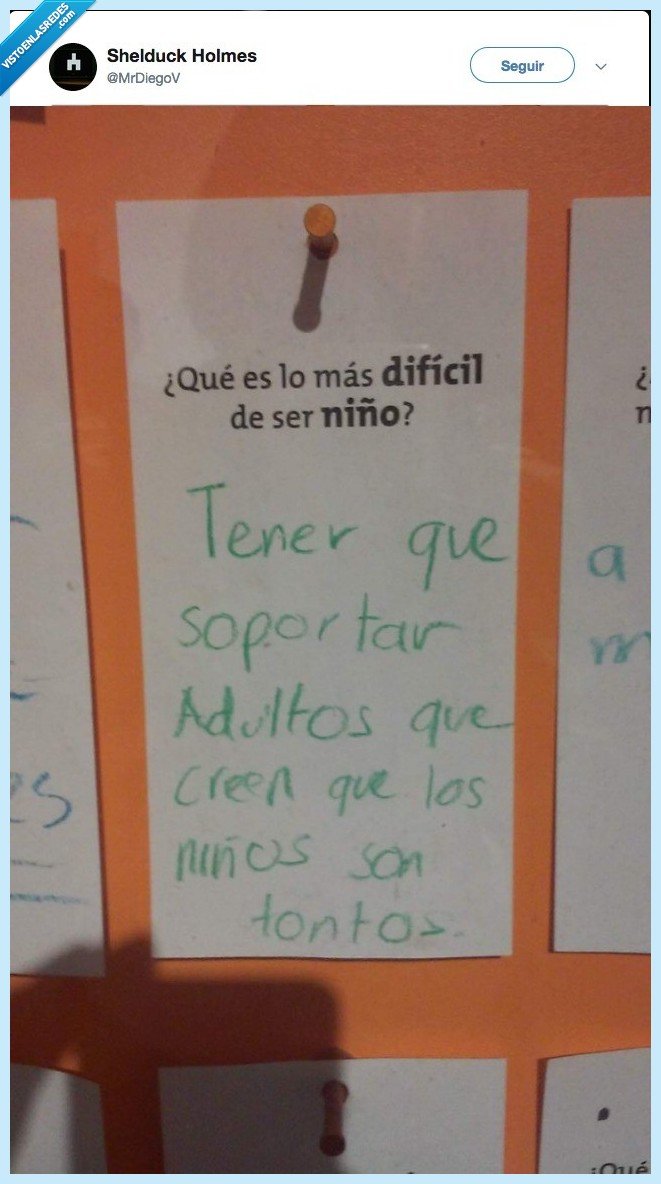 VISTOENLASREDES
.com
Shelduck Holmes
@MrDiegoV
Seguir
¿Qué es lo más difícil
de ser niño?
Tener que
soportar
Adultos que
creen que los
niños son
tontos.
¿
a
m
es
¿Qué